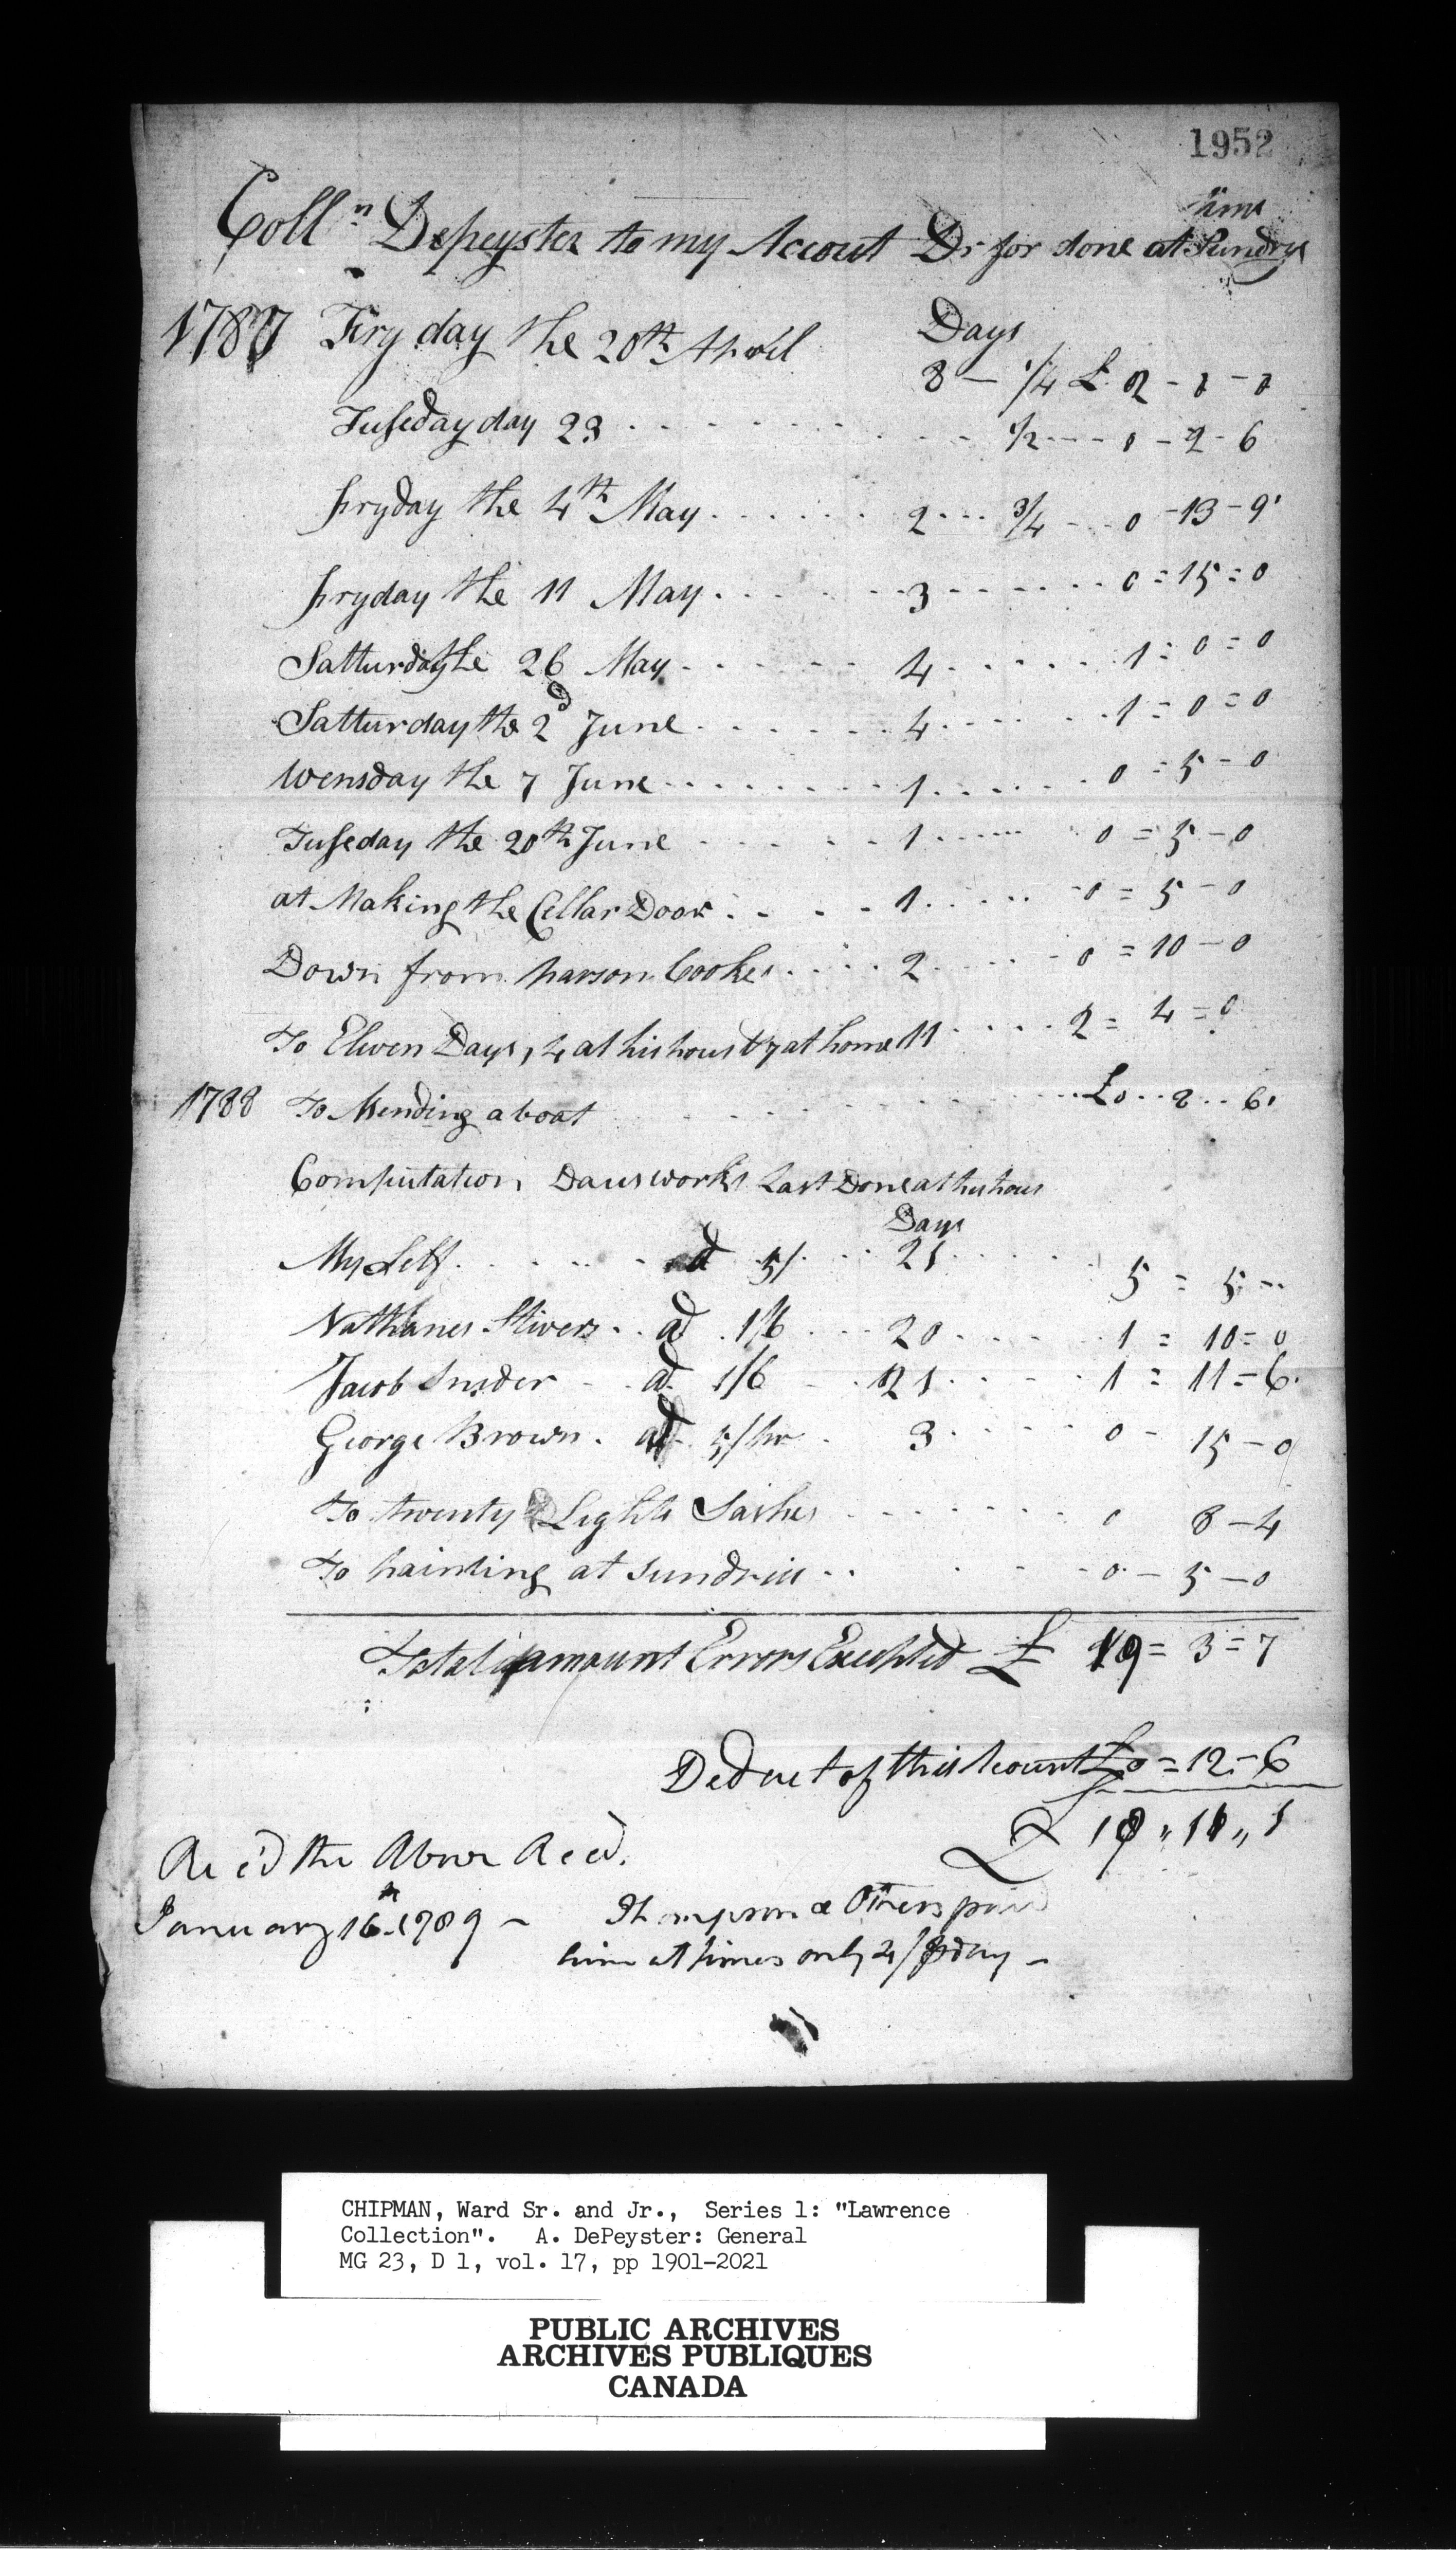 1952
time
Colln Depeyster to my Accout Dr for done at Sundrys
1787 Fryday the 20th April Days
8 - 1/4 £ 2 - 1 - 3
Tuseday day 23 1/2 0 - 2 - 6
fryday the 4th May 2 3/4 0 - 13 - 9
fryday the 11 May 3 0 = 15 = 0
Satturday the 26 May 4 1 = 0 = 0
Satturday the 2d June 4 1 = 0 = 0
Wensday the 7 June 1 0 = 5 - 0
Tuseday the 20th June 1 0 = 5 - 0
at Making the Cellar Door 1 0 = 5 - 0
Down from parson Cookes 2 0 = 10 - 0
To Eleven Days, 4 at his hous & 7 at home 11 2 = 4 = 0
1788 To Mending a boat £0 2 6
Computation Daysworks Last Done at his hous
Days
My Self ad 5/ 21 5 = 5
Nathanes Stivers ad 1/6 20 1 = 10 = 0
Jacob Snider ad 1/6 21 1 = 11 = 6
George Brown ad 5/ 3 0 - 15 - 0
To twenty Lights Sashes 0 8 - 4
To painting at sundries 0 - 5 - 0
Total amount Errors Excepted £ 19 = 3 = 7
Deduct of this Acount £0 = 12 - 6
£ 18 " 11 " 1
Rec'd the Above Reed.
January 16th 1789 - Thompson & Others paid
him at times only 4/ day -
CHIPMAN, Ward Sr. and Jr., Series 1: "Lawrence
Collection". A. DePeyster: General
MG 23, D 1, vol. 17, pp 1901-2021
PUBLIC ARCHIVES
ARCHIVES PUBLIQUES
CANADA